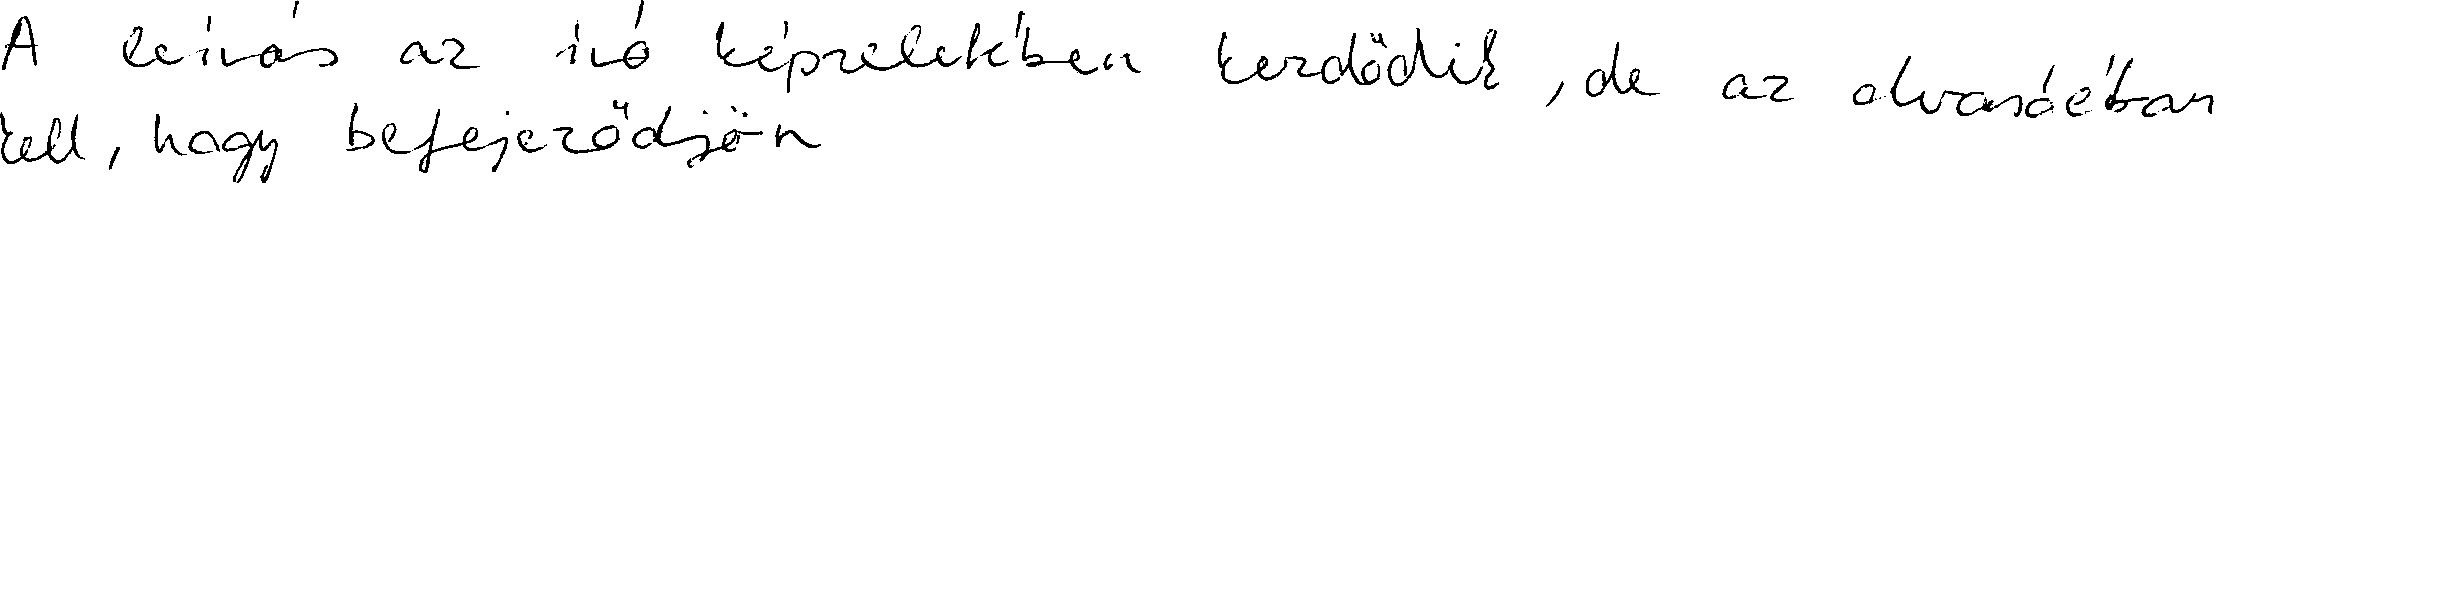 A leírás az író képzeletében kezdődik, de az olvasóéban
kell, hogy befejeződjön